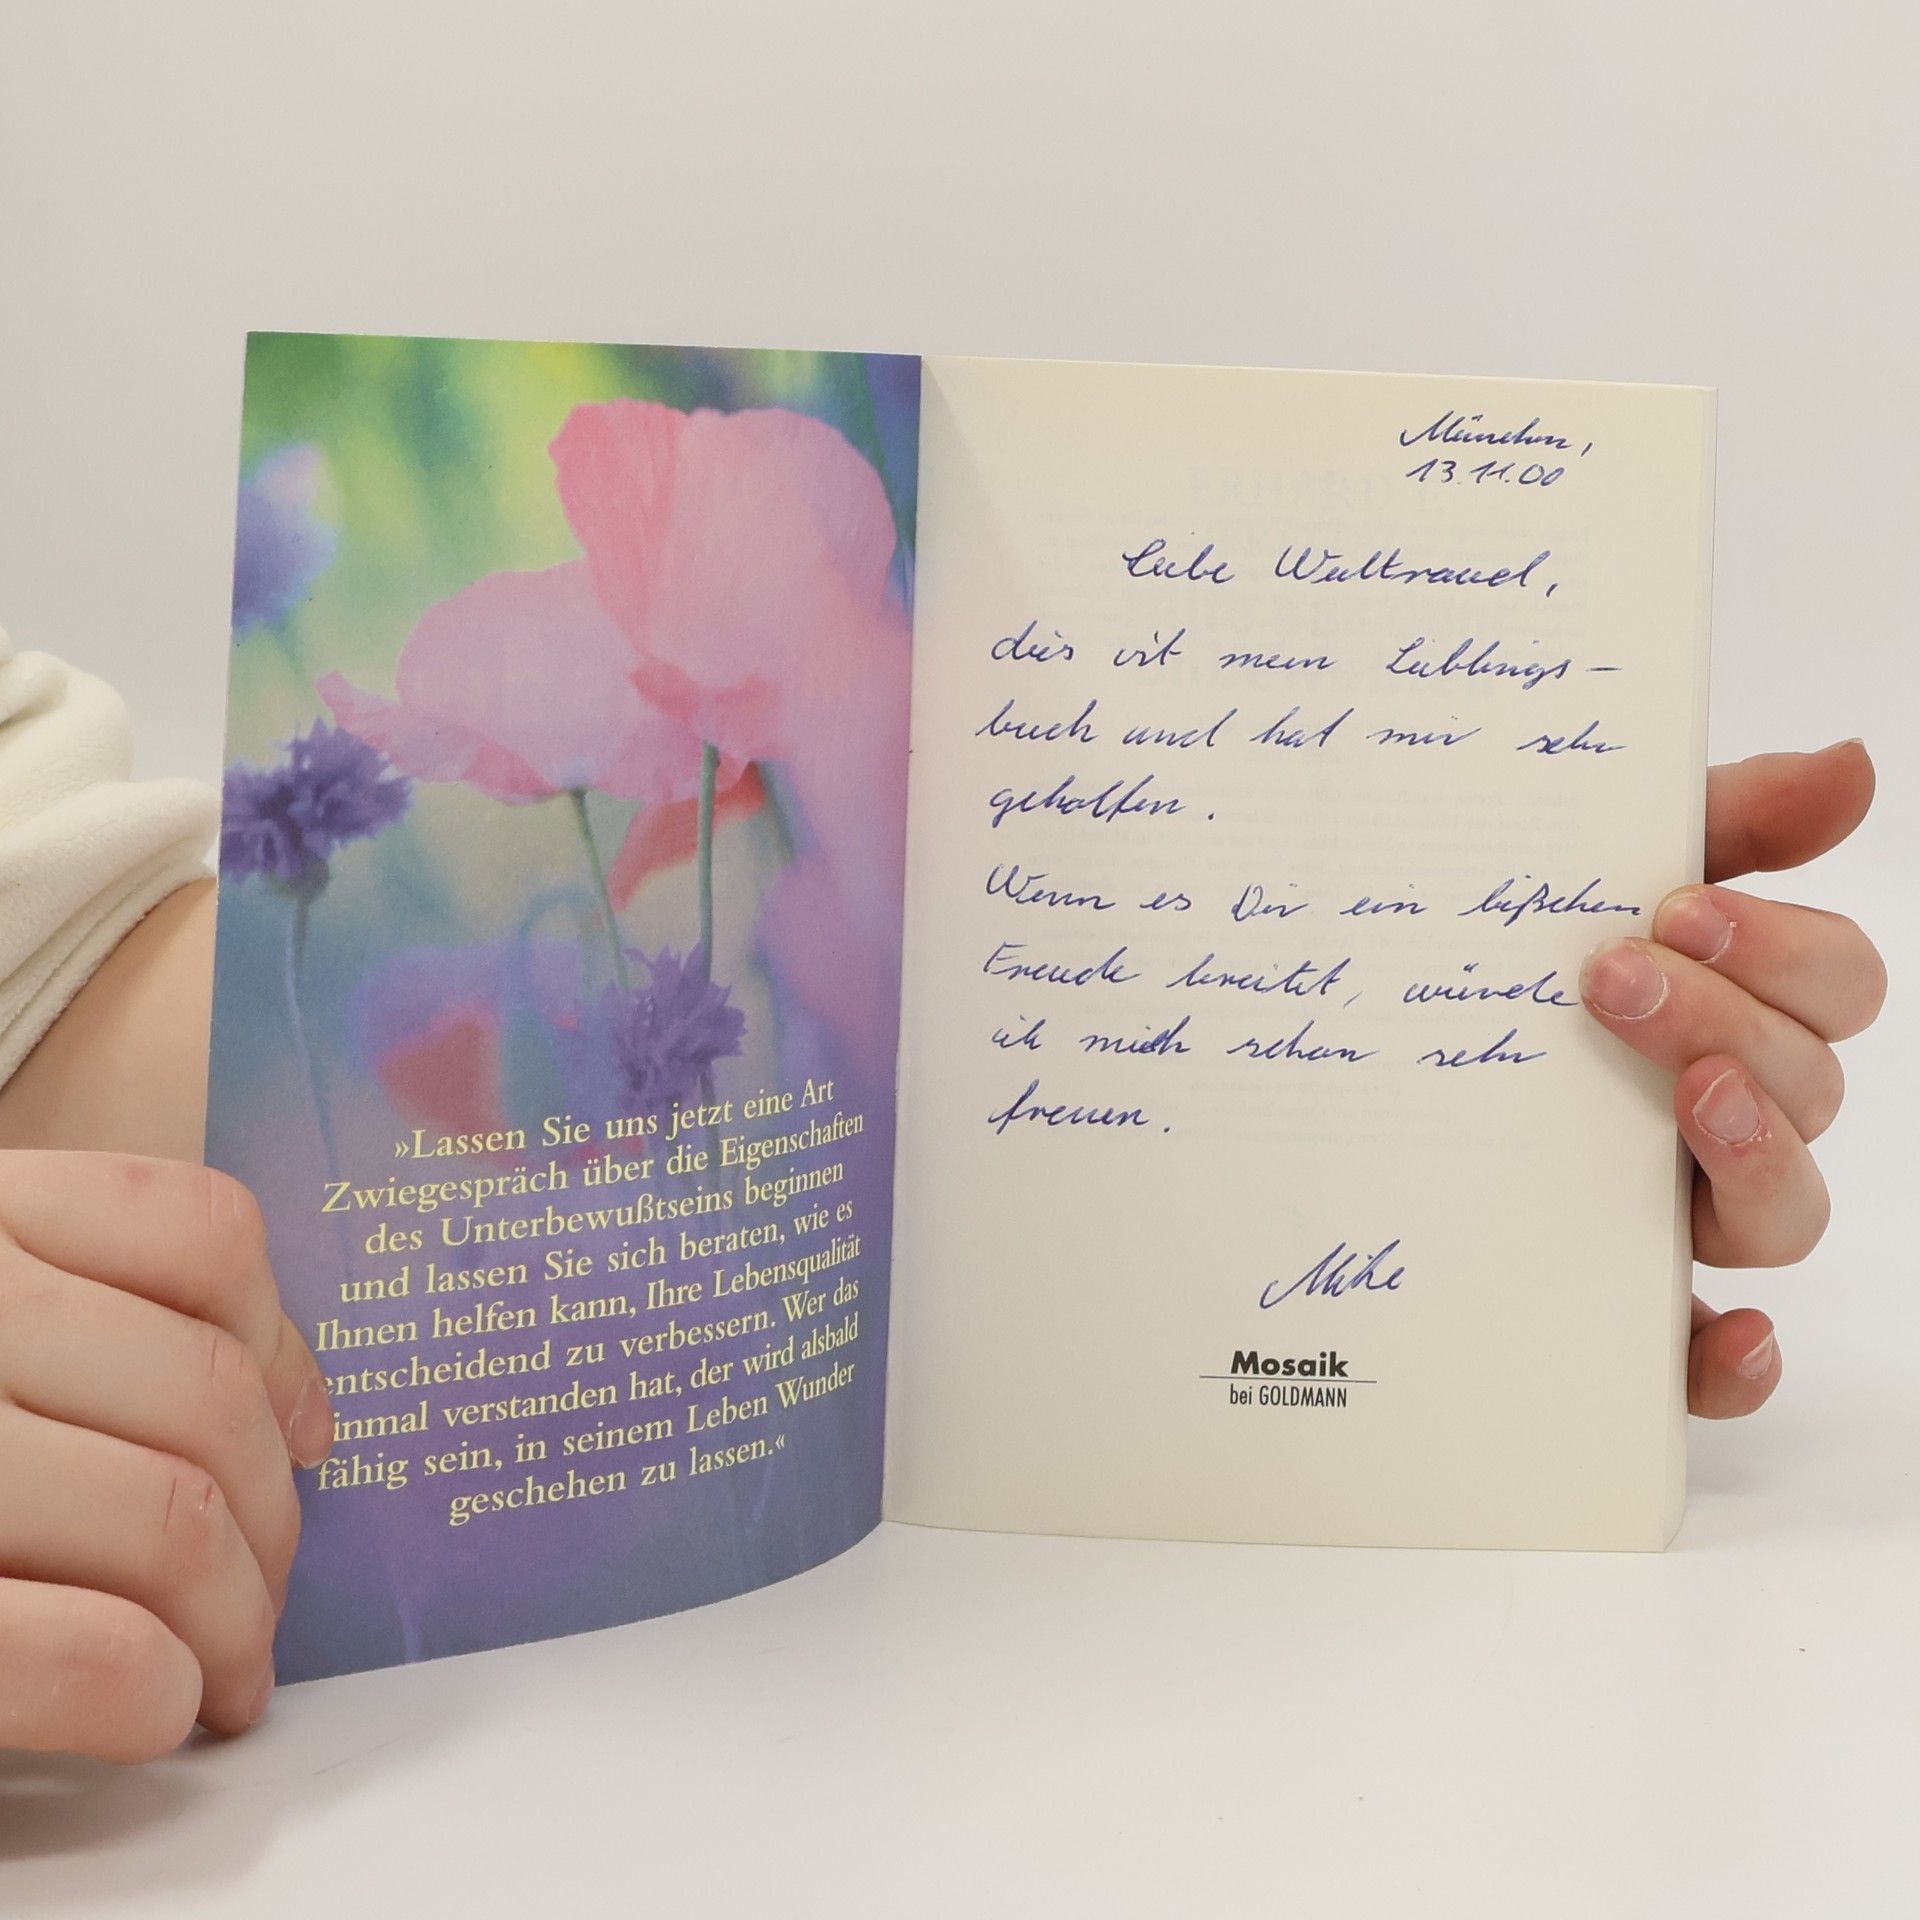 »Lassen Sie uns jetzt eine Art
Zwiegespräch über die Eigenschaften
des Unterbewußtseins beginnen
und lassen Sie sich beraten, wie es
Ihnen helfen kann, Ihre Lebensqualität
entscheidend zu verbessern. Wer das
einmal verstanden hat, der wird alsbald
fähig sein, in seinem Leben Wunder
geschehen zu lassen.«
München,
13.11.00
Liebe Waltraud,
dies ist mein Lieblings-
buch und hat mir sehr
geholfen.
Wenn es Dir ein bißchen
Freude bereitet, würde
ich mich schon sehr
freuen.
Mike
Mosaik
bei GOLDMANN